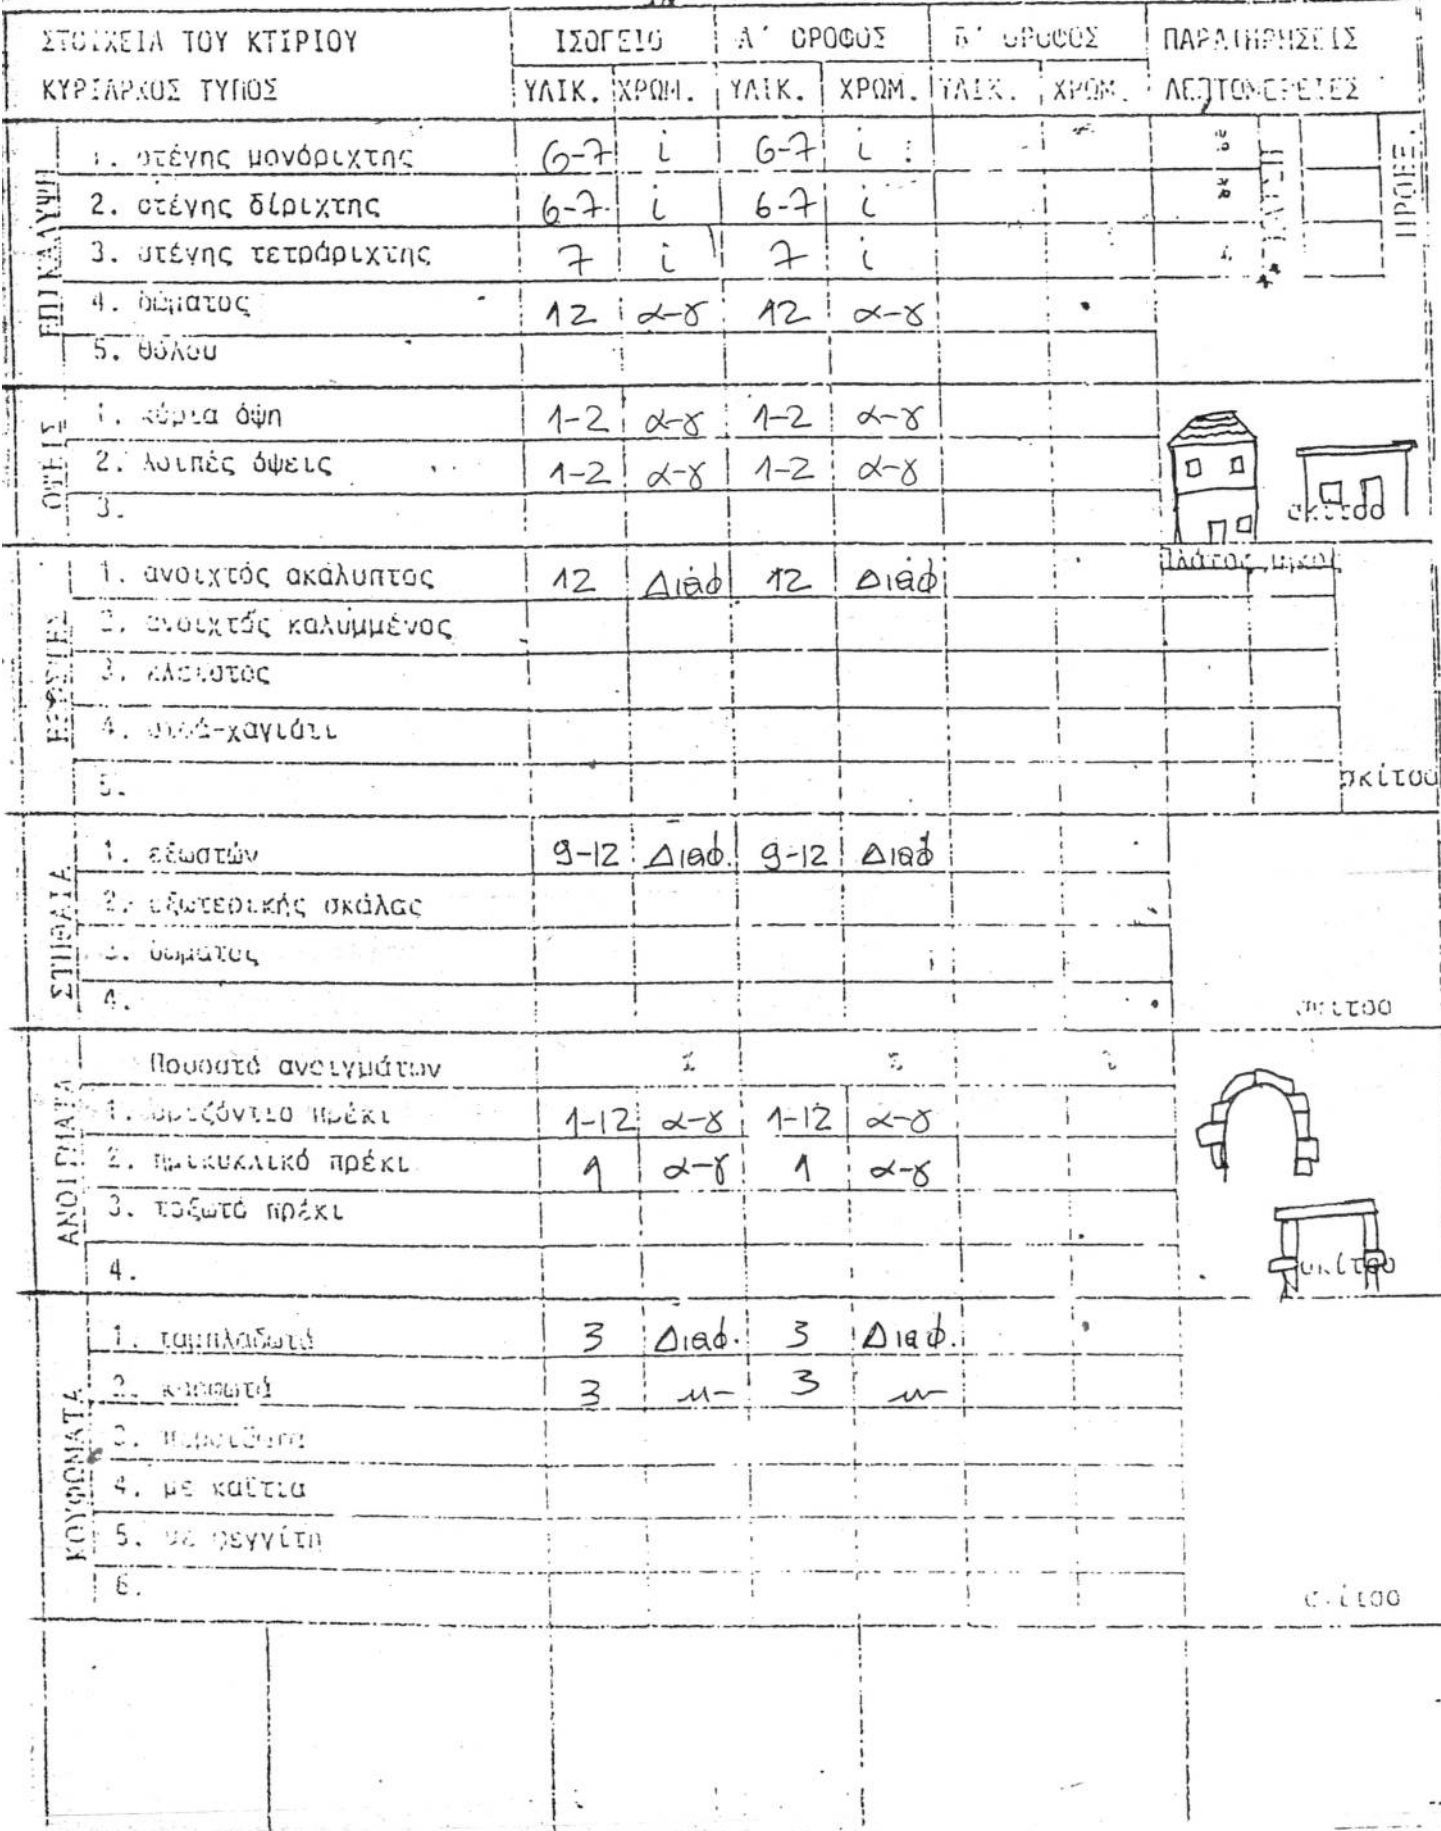 ΣΤΟΙΧΕΙΑ ΤΟΥ ΚΤΙΡΙΟΥ ΙΣΟΓΕΙΟ Α΄ ΟΡΟΦΟΣ Β΄ ΟΡΟΦΟΣ ΠΑΡΑΤΗΡΗΣΕΙΣ
ΚΥΡΙΑΡΧΟΣ ΤΥΠΟΣ ΥΛΙΚ. ΧΡΩΜ. ΥΛΙΚ. ΧΡΩΜ. ΥΛΙΚ. ΧΡΩΜ. ΛΕΠΤΟΜΕΡΕΙΕΣ
ΕΠΙΚΑΛΥΨΗ
1. στέγης μονόριχτης 6-7 i 6-7 i
2. στέγης δίριχτης 6-7 i 6-7 i
3. στέγης τετράριχτης 7 i 7 i
4. δώματος 12 α-γ 12 α-γ
5. θόλου
ΚΛΙΣΗ
ΠΡΟΕΞ.
ΟΨΕΙΣ
1. κύρια όψη 1-2 α-γ 1-2 α-γ
2. λοιπές όψεις 1-2 α-γ 1-2 α-γ
3. σκίτσο
ΕΞΩΣΤΕΣ
πλάτος μήκος
1. ανοιχτός ακάλυπτος 12 Διάφ 12 Διάφ
2. ανοιχτός καλυμμένος
3. κλειστός
4. -χαγιάτι
5. σκίτσο
ΣΤΗΘΑΙΑ
1. εξωστών 9-12 Διαφ. 9-12 Διαφ
2. εξωτερικής σκάλας
3. δώματος
4. σκίτσο
ΑΝΟΙΓΜΑΤΑ
Ποσοστό ανοιγμάτων % % %
1. οριζόντιο πρέκι 1-12 α-γ 1-12 α-γ
2. ημικυκλικό πρέκι 1 α-γ 1 α-γ
3. τοξωτό πρέκι
4. σκίτσο
ΚΟΥΦΩΜΑΤΑ
1. ταμπλαδωτά 3 Διαφ. 3 Διαφ.
2. καρφωτά 3 -〃- 3 -〃-
3.
4. με καΐτια
5. με φεγγίτη
6. σκίτσο